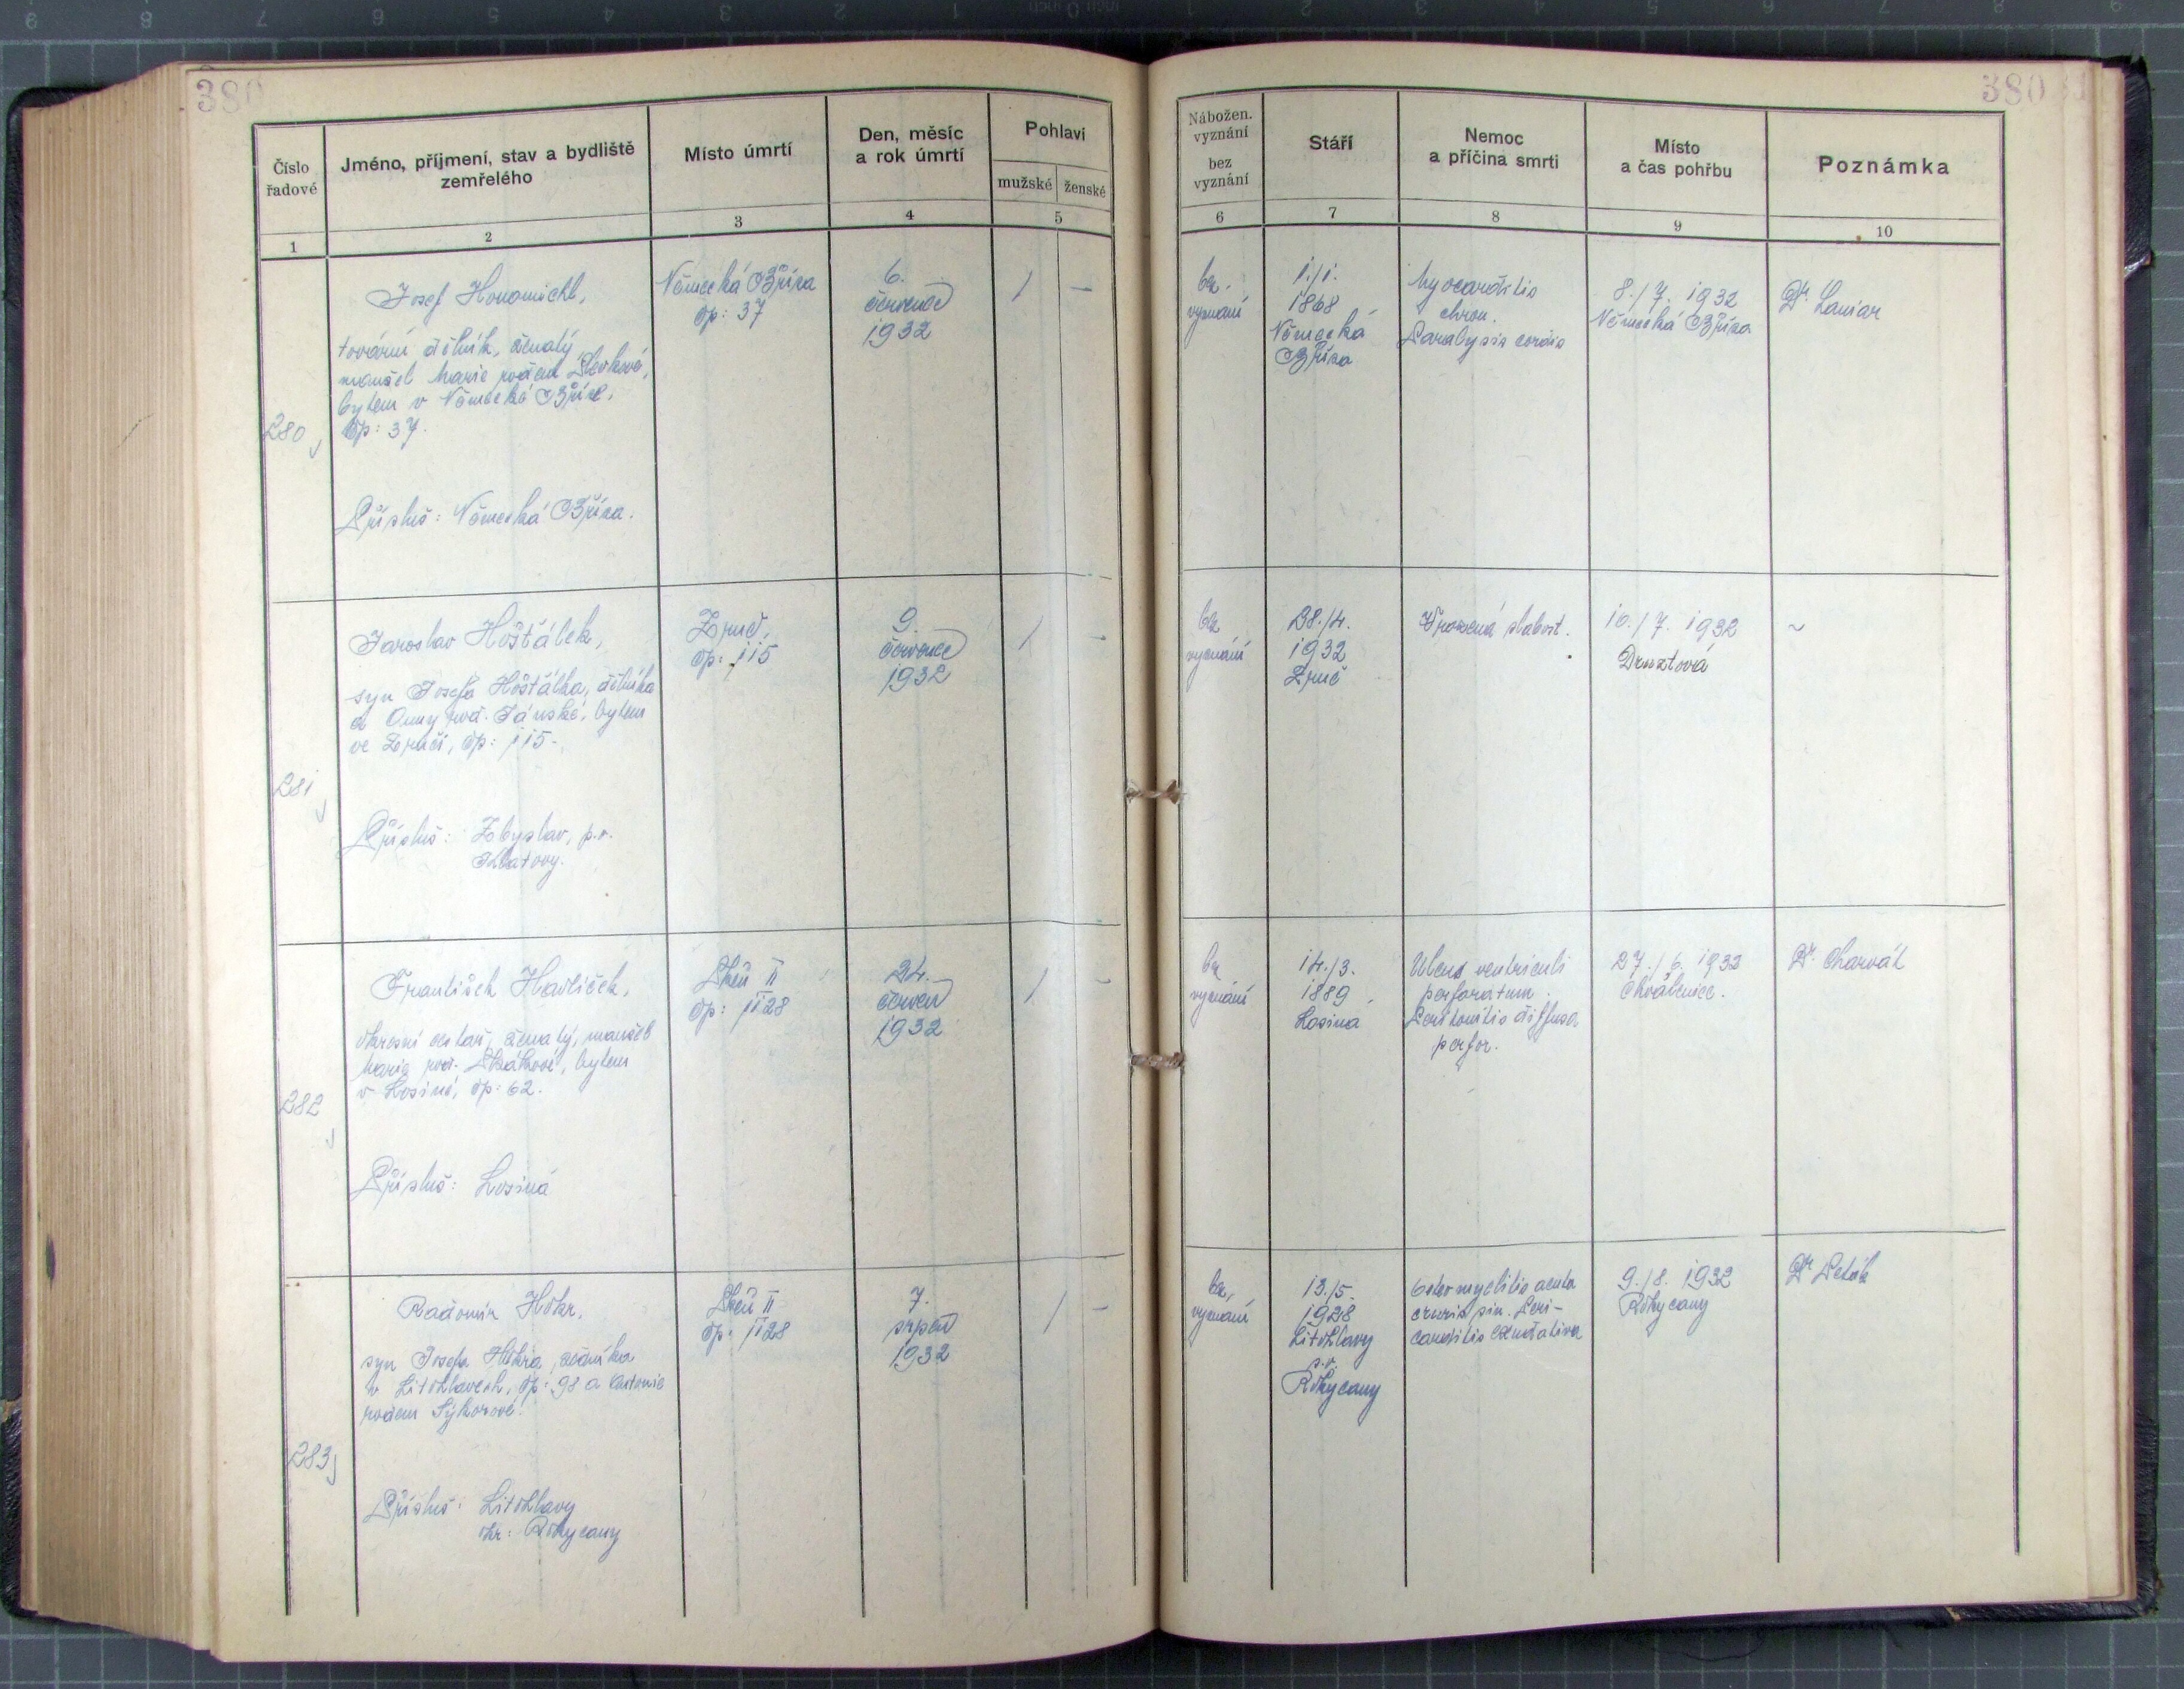 380
Číslo
řadové
Jméno, příjmení, stav a bydliště
zemřelého
Místo úmrtí
Den, měsíc
a rok úmrtí
Pohlaví
mužské ženské
1 2 3 4 5
280
Josef Honomichl,
tovární dělník, ženatý
manžel Marie rozen
bytem v Německé Bříze,
čp: 37.
Přísluš: Německá Bříza.
Německá Bříza
čp: 37
6.
července
1932
/ —
281
Jaroslav Hošťálek,
syn Josefa Hošťálka, dělníka
a Anny roz. Jánské, bytem
ve Zruči, čp: 115.
Přísluš: Zbyslav, p.o.
Zruč,
čp: 115
9.
července
1932
/ -
282
František Havlíček,
okresní cestář, ženatý, manžel
Marie roz. bytem
v Losiné, čp: 62.
Přísluš: Losiná
Plzeň II
čp: 1128
24.
červen
1932
/ -
283
Radomír Hokr,
syn Josefa Hokra, zedníka
v Litohlavech, čp: 98 a Antonie
rozen Sýkorové.
Přísluš: Litohlavy
okr: Rokycany
Plzeň II
čp: 1128
7.
srpen
1932
/ -
380
Nábožen.
vyznání
bez
vyznání
Stáří
Nemoc
a příčina smrti
Místo
a čas pohřbu
Poznámka
6 7 8 9 10
bez.
vyznání
1./1.
1868
Německá
Bříza
Myocarditis
chron.
Paralysis cordis
8./7. 1932
Německá Bříza
Dr. Laniar
bez
vyznání
28./4.
1932
Zruč
Vrozená slabost.
10./7. 1932
Druztová
~
bez
vyznání
14./3.
1889
Losina
Ulcus ventriculi
perforatum
Peritonitis diffusa
perfor.
27./6. 1932
Chválenice.
Dr. Charvát
bez,
vyznání
13./5.
1928
Litohlavy
p.o.
Rokycany
Osteomyelitis acuta
cruris sin. Peri-
carditis exudativa
9./8. 1932
Rokycany
Dr Peták